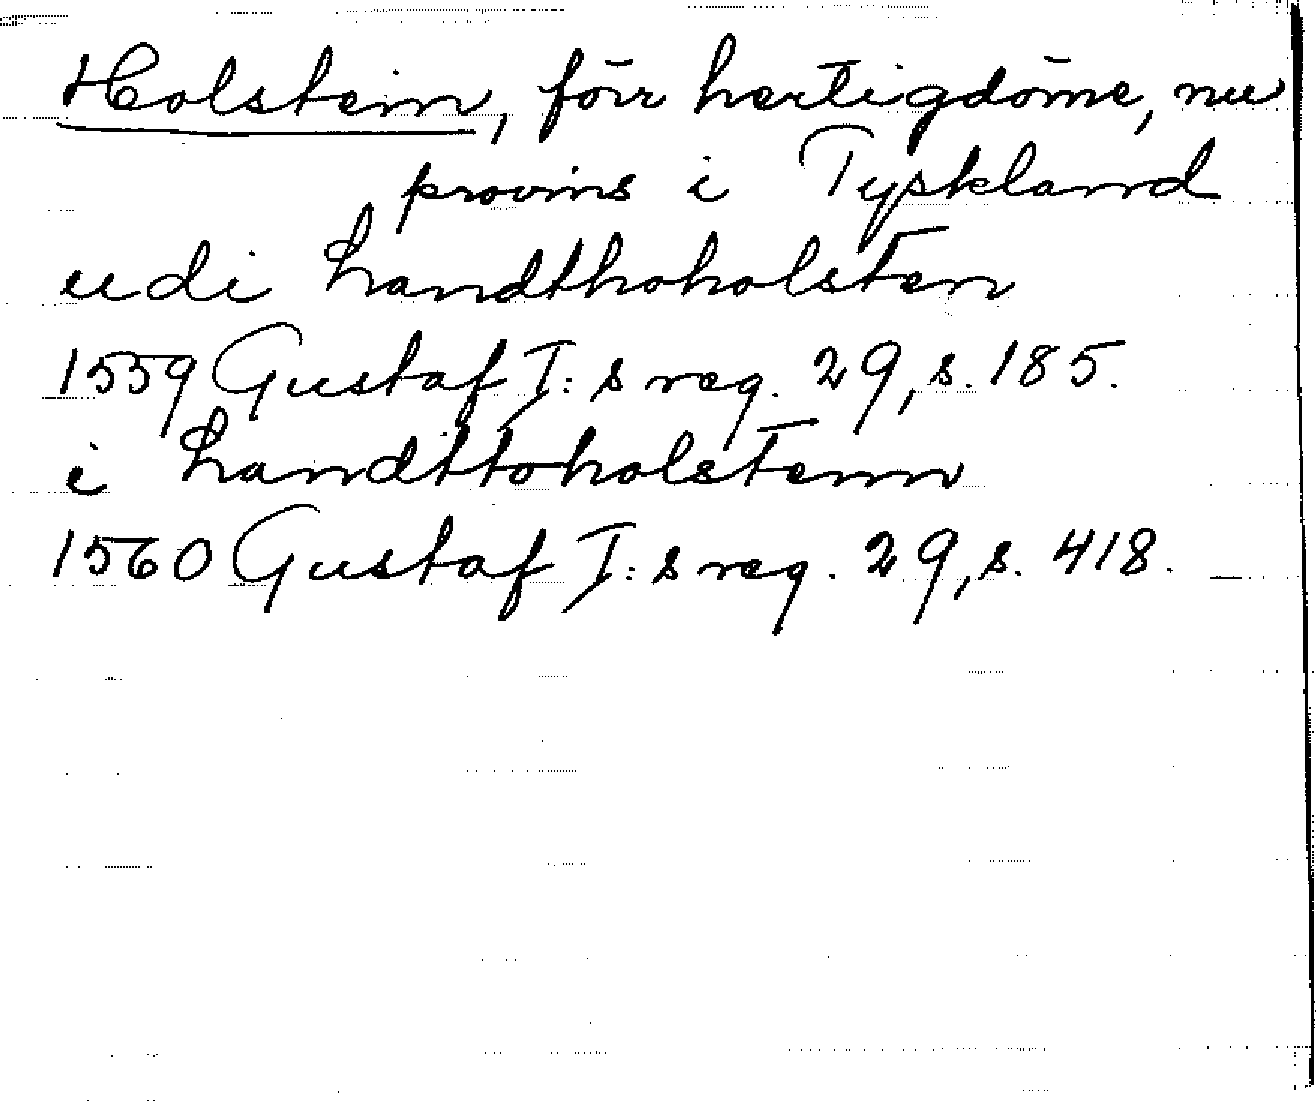 Holstein, förr hertigdöme, nu
provins i Tyskland
udi Landthoholsten
1559 Gustaf I:s reg. 29, s. 185.
i Landttoholstenn
1560 Gustaf I:s reg. 29, s. 418.